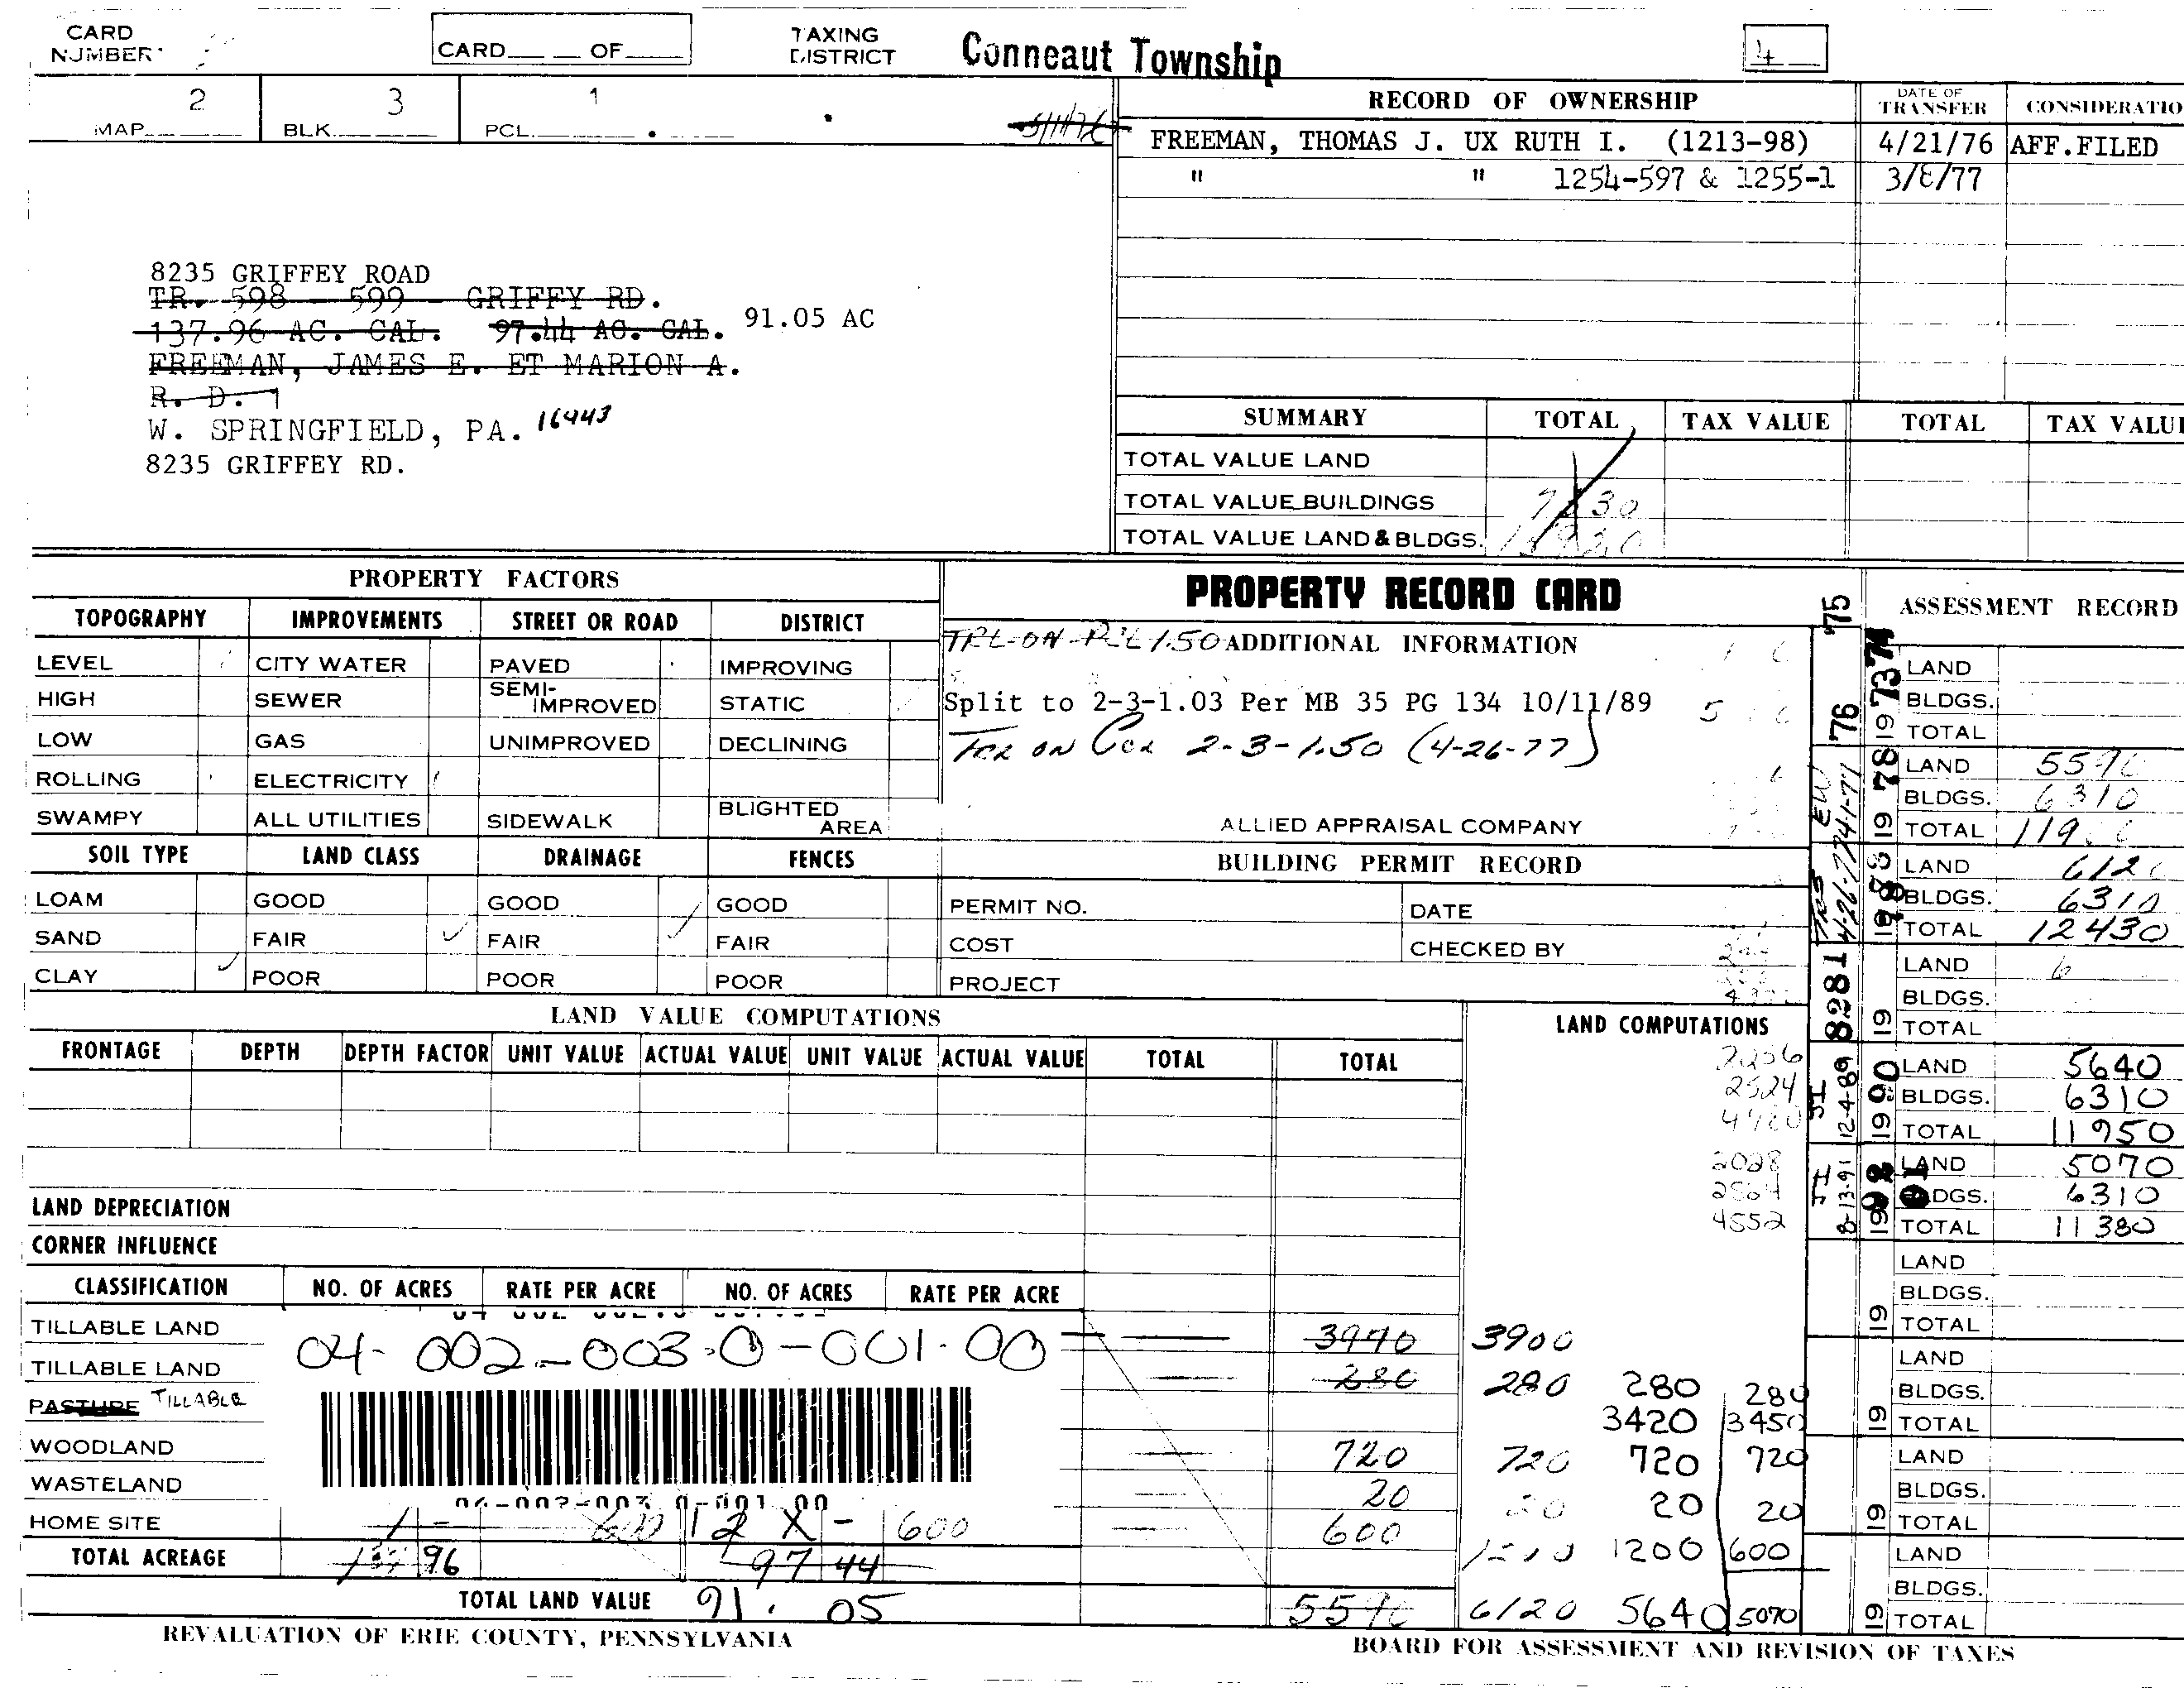 CARD NUMBER
CARD OF
TAXING DISTRICT
Conneaut Township
4
2 3 1
MAP BLK. PCL.
5/11/76
RECORD OF OWNERSHIP DATE OF TRANSFER CONSIDERATIO
FREEMAN, THOMAS J. UX RUTH I. (1213-98) 4/21/76 AFF.FILED
" " 1254-597 & 1255-1 3/8/77
8235 GRIFFEY ROAD
TR. 598 - 599 - GRIFFY RD.
137.96 AC. CAL. 97.44 AC. CAL. 91.05 AC
FREEMAN, JAMES E. ET MARION A.
R. D. 1
W. SPRINGFIELD, PA. 16443
8235 GRIFFEY RD.
SUMMARY TOTAL TAX VALUE TOTAL TAX VALUE
TOTAL VALUE LAND
TOTAL VALUE BUILDINGS
TOTAL VALUE LAND & BLDGS.
PROPERTY FACTORS
TOPOGRAPHY IMPROVEMENTS STREET OR ROAD DISTRICT
LEVEL CITY WATER PAVED IMPROVING
HIGH SEWER SEMI-IMPROVED STATIC
LOW GAS UNIMPROVED DECLINING
ROLLING ELECTRICITY
SWAMPY ALL UTILITIES SIDEWALK BLIGHTED AREA
SOIL TYPE LAND CLASS DRAINAGE FENCES
LOAM GOOD GOOD GOOD
SAND FAIR FAIR FAIR
CLAY POOR POOR POOR
PROPERTY RECORD CARD
TRL-ON-PCL 1.50 ADDITIONAL INFORMATION
Split to 2-3-1.03 Per MB 35 PG 134 10/11/89
TRL ON PCL 2-3-1.50 (4-26-77)
ALLIED APPRAISAL COMPANY
BUILDING PERMIT RECORD
PERMIT NO. DATE
COST CHECKED BY
PROJECT
ASSESSMENT RECORD
'75
'76
1973 74
LAND
BLDGS.
TOTAL
1978
LAND 5590
BLDGS. 6310
TOTAL
4-26-77
4-1-77
1988
LAND 6120
BLDGS. 6310
TOTAL 12430
8281
19
LAND
BLDGS.
TOTAL
12-4-89
1990
LAND 5640
BLDGS. 6310
TOTAL 11950
8-13-91
LAND 5070
BLDGS. 6310
TOTAL 11380
19
LAND
BLDGS.
TOTAL
19
LAND
BLDGS.
TOTAL
19
LAND
BLDGS.
TOTAL
19
LAND
BLDGS.
TOTAL
LAND VALUE COMPUTATIONS
LAND COMPUTATIONS
FRONTAGE DEPTH DEPTH FACTOR UNIT VALUE ACTUAL VALUE UNIT VALUE ACTUAL VALUE TOTAL TOTAL
2524
2028
4552
LAND DEPRECIATION
CORNER INFLUENCE
CLASSIFICATION NO. OF ACRES RATE PER ACRE NO. OF ACRES RATE PER ACRE
TILLABLE LAND 3970 3900
04-002-003.0-001.00
TILLABLE LAND 280 280 280 280
PASTURE TILLABLE 3420 3450
WOODLAND 720 720 720 720
WASTELAND 20 20 20
04-002-003.0-001.00
HOME SITE 1 - 600 600 600 1200 600
TOTAL ACREAGE 97 44
TOTAL LAND VALUE 91. 05 5590 6120 5640 5070
REVALUATION OF ERIE COUNTY, PENNSYLVANIA
BOARD FOR ASSESSMENT AND REVISION OF TAXES